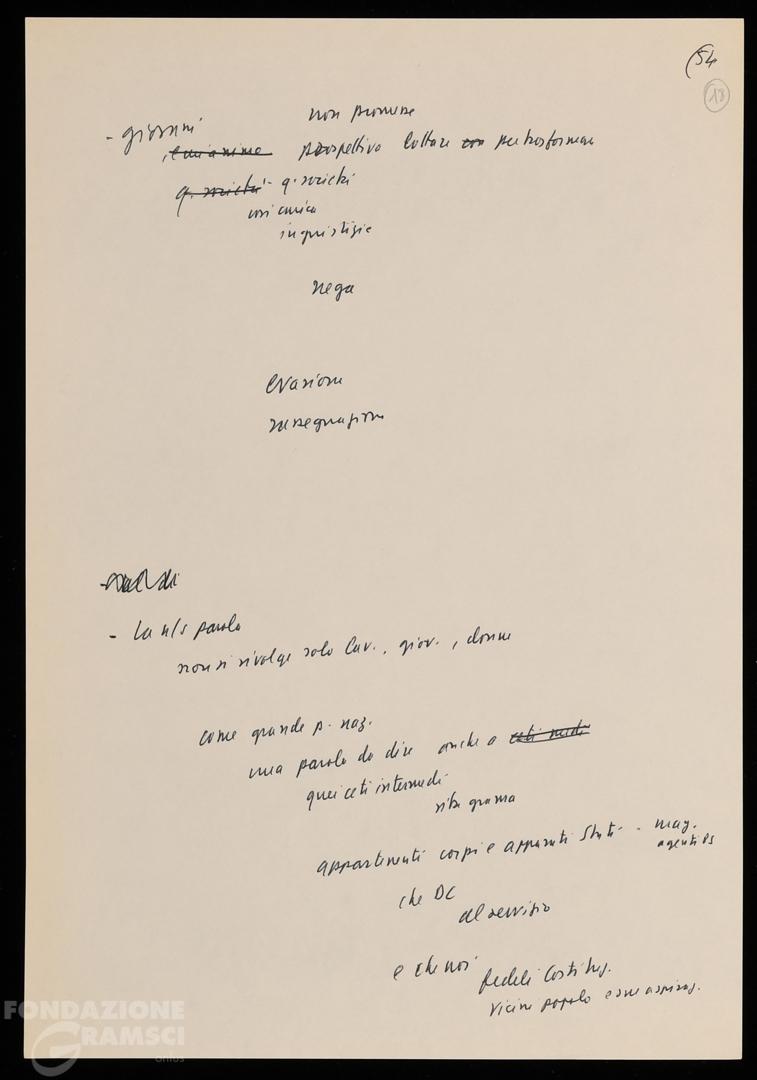 (54
18
- giovani non promesse
prospettiva lottare con per trasformare
q. società - q. società
così carica
ingiustizie
nega
evasione
rassegnazione
- La n/s parola
non si rivolge solo lav., giov., donne
come grande p. naz.
una parola da dire anche a ceti medi
quei ceti intermedi
vita grama
appartenenti corpi e apparati Stato - mag.
agenti PS
che DC
al servizio
e che noi
fedeli Costituz.
vicini popolo e sue aspiraz.
FONDAZIONE
GRAMSCI
onlus